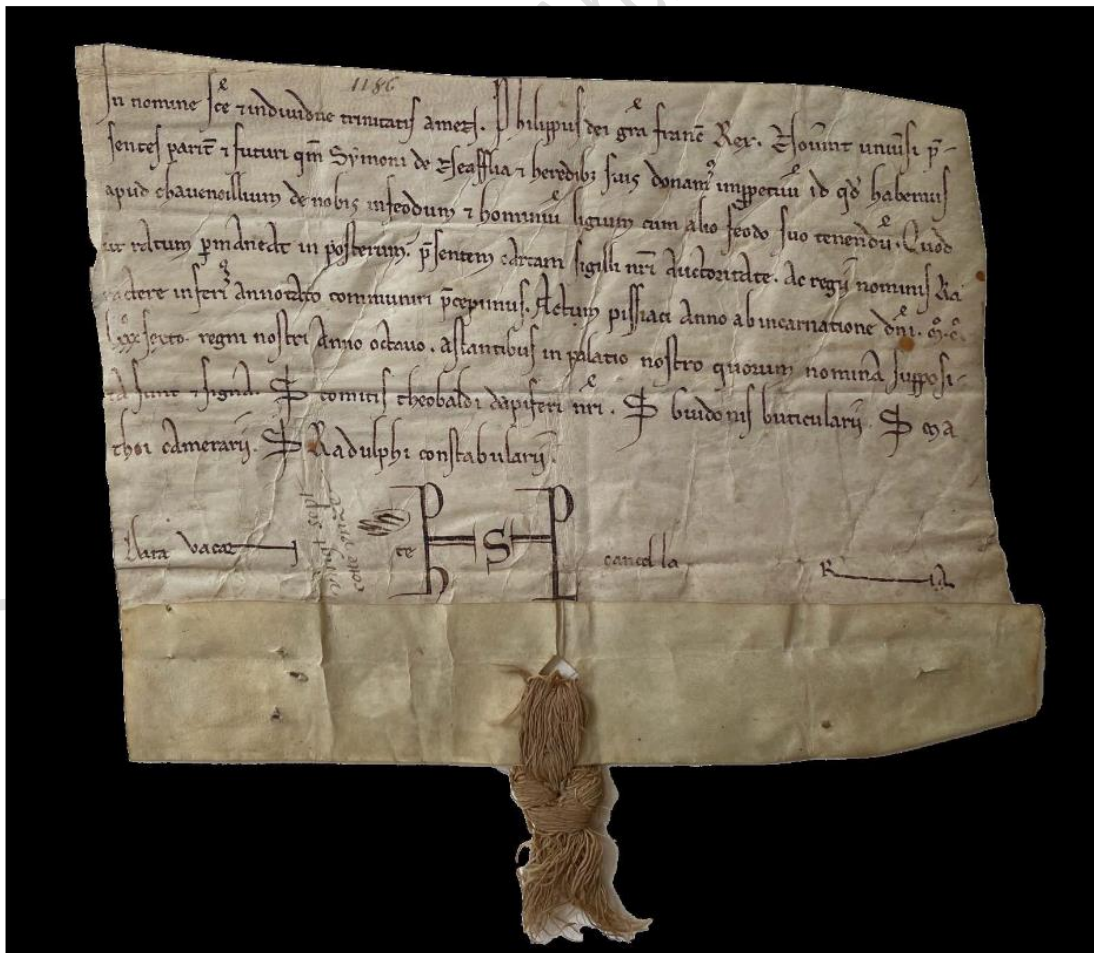 1186
In nomine sc̄e ⁊ individue trinitatis amen. Philippus dei gr̄a franc̄ Rex. Nov̄int univ̄si p̄-
sentes parit̄ ⁊ futuri qm̄ Symoni de Escafflia ⁊ heredib; suis donam⁹ imppetuū id qd̄ habemus
apud chavenoillium de nobis infeodum ⁊ hominiū ligium cum alio feodo suo tenendū. Quod
ut ratum p̄maneat in posterum. p̄sentem cartam sigilli nr̄i auctoritate. ac regii nominis ka
ractere inferi⁹ annotato communiri p̄cepimus. Actum pissiaci anno ab incarnatione dn̄i. m̊. c̊.
lxxx̊ sexto. regni nostri anno octavo. astantibus in palatio nostro quorum nomina supposi-
ta sunt ⁊ signa. S comitis theobaldi dapiferi nr̄i. S buidonis buticularii. S ma
thei camerarii. S Radulphi constabularii.
Data vacan te cancella R ia